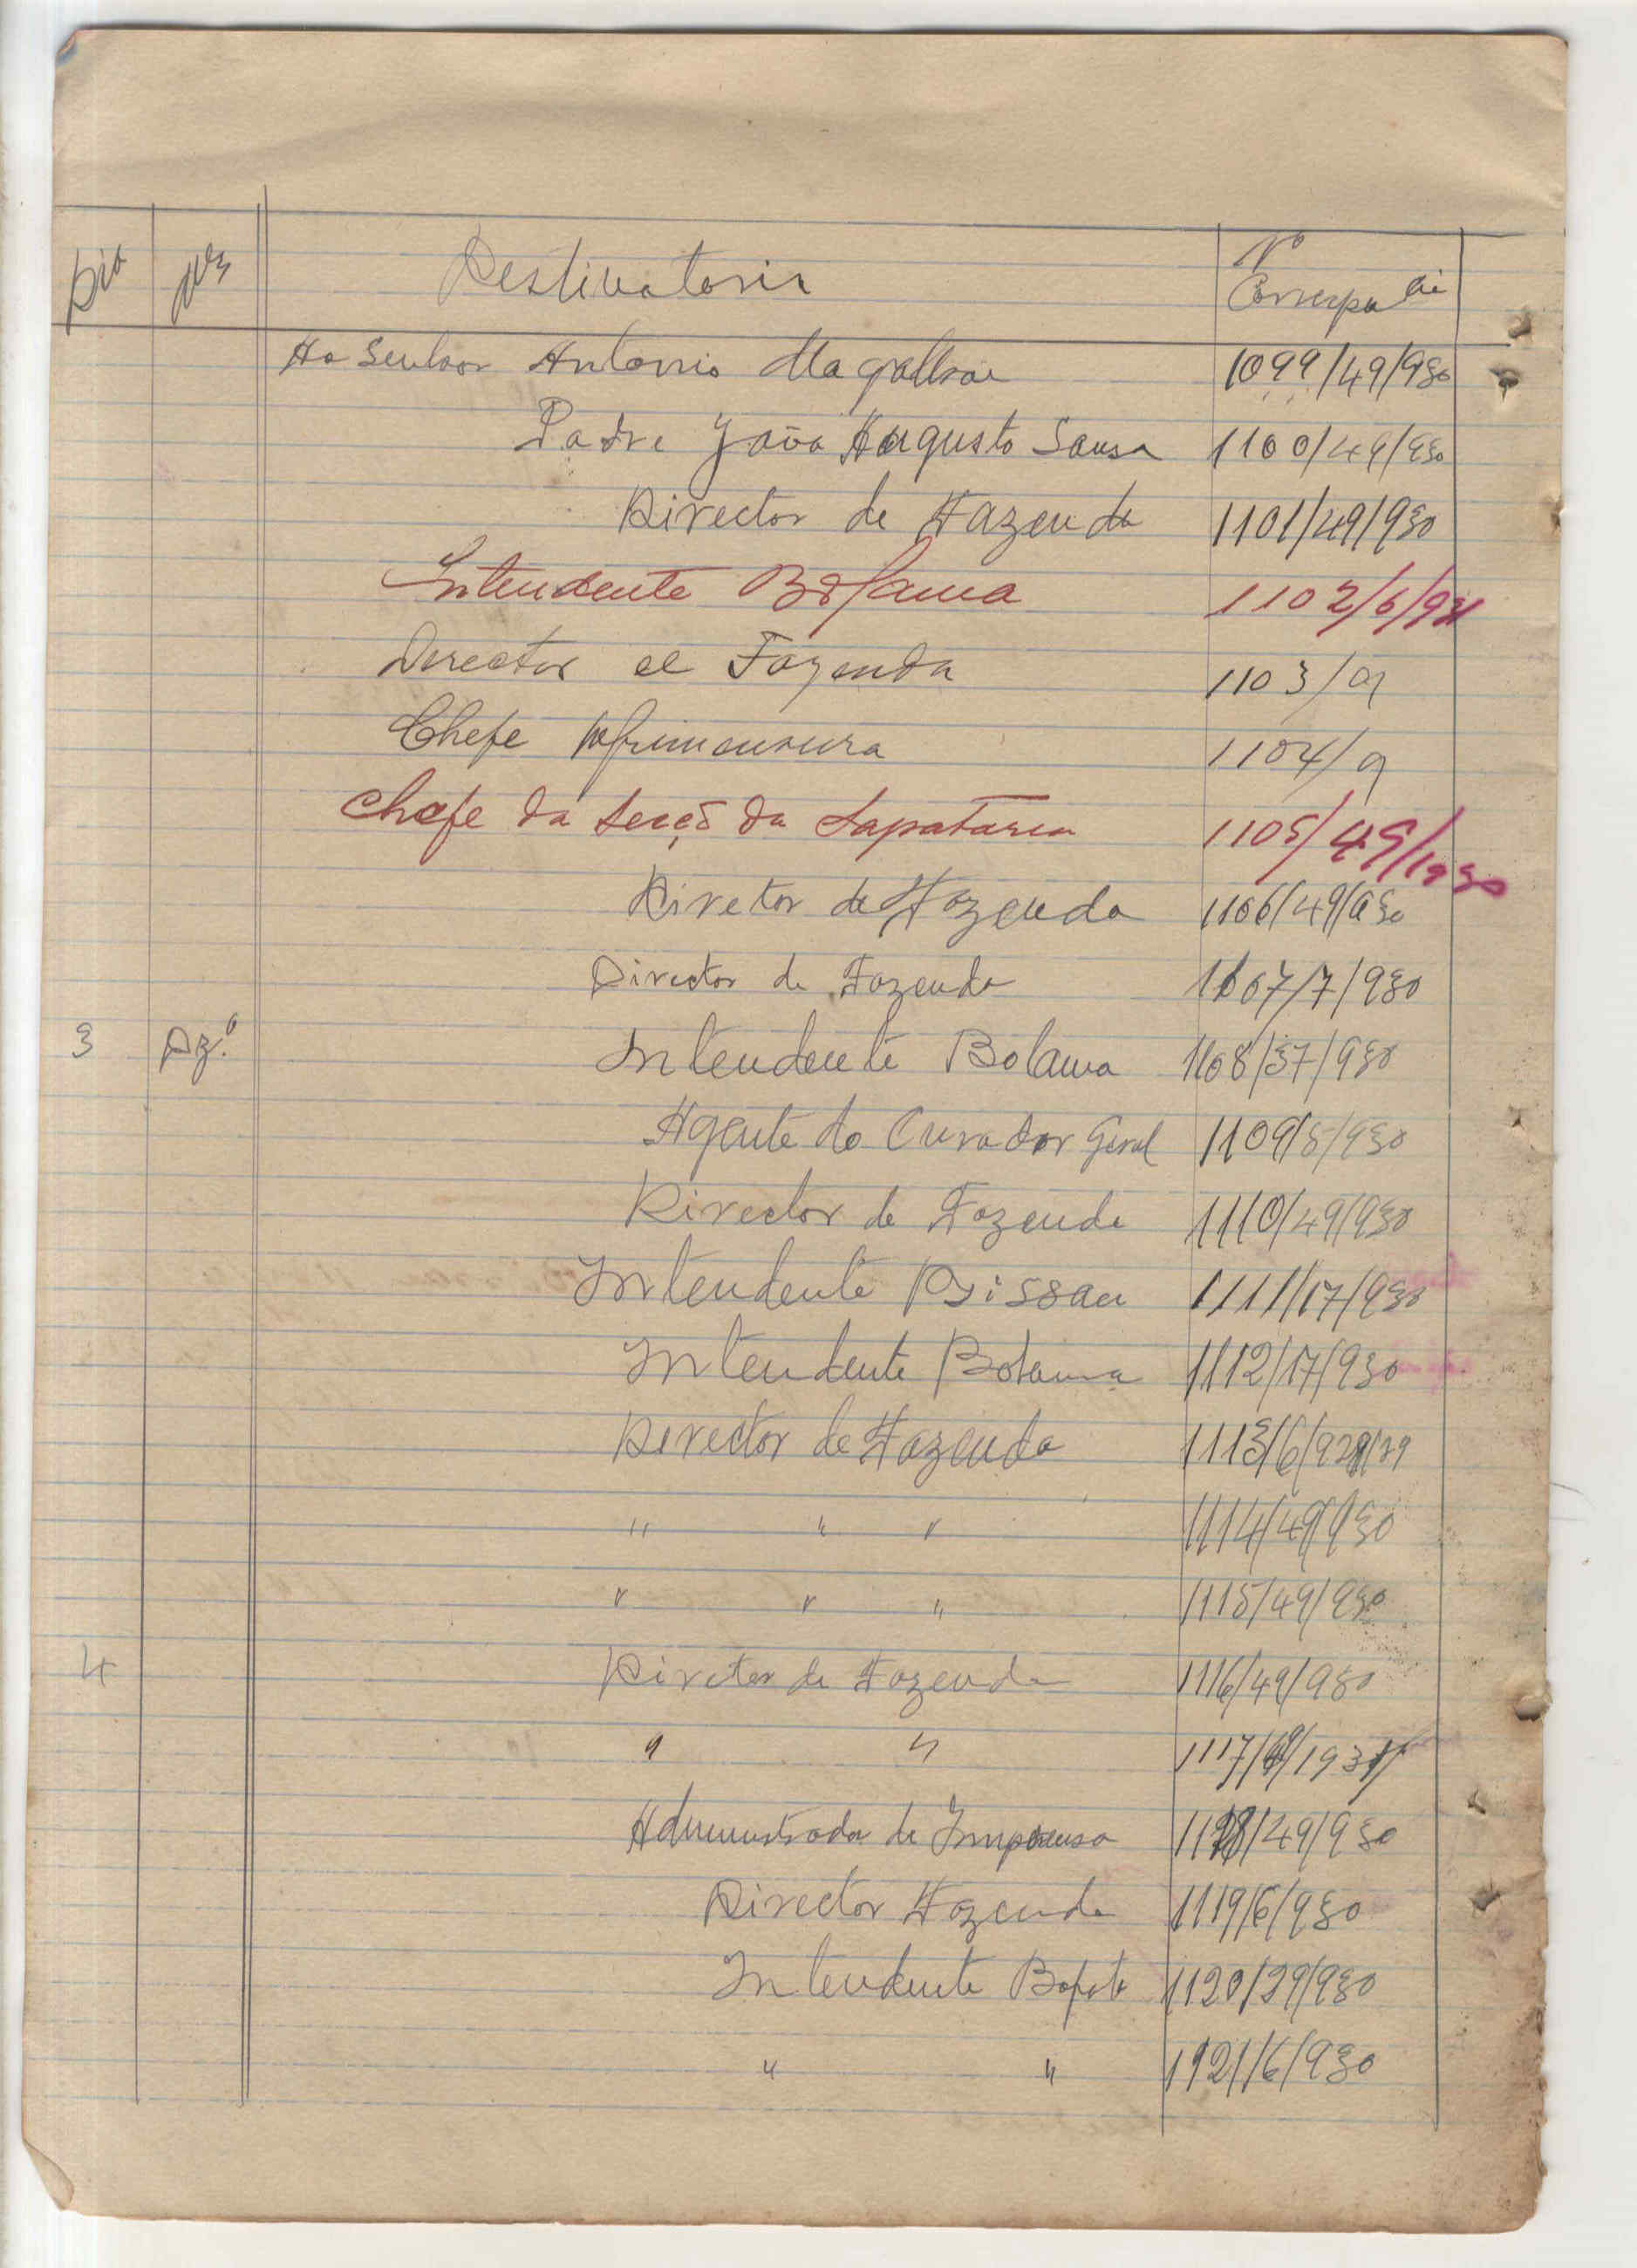 Dia Mês Destinatorio Nº
Correspa
Ao Senhor Antonio Magalhãe 1099/49/930
Padre João Augusto Sousa 1100/49/930
Director de Fazenda 1101/49/930
Intendente Bolama 1102/6/931
Director de Fazenda 1103/9
Chefe Agrimensura 1104/9
Chefe da Secçõ da Sapataria 1105/49/1930
Diretor de Fazenda 1106/49/930
Director de Fazenda 1107/7/930
3 Dz.º Intendente Bolama 1108/37/930
Agente do Curador Geral 1109/5/930
Director de Fazenda 1110/49/930
Intendente Bissau 1111/17/930
Intendente Bolama 1112/17/930
Director de Fazenda 1113/6/928/29
" " " 1114/49/930
" " " 1115/49/930
4 Diretor de Fazenda 1116/49/930
" " 1117/49/1931
Administrador da Imprensa 1118/49/930
Director Fazenda 1119/6/930
Intendente Bafatá 1120/29/930
" " 1121/6/930